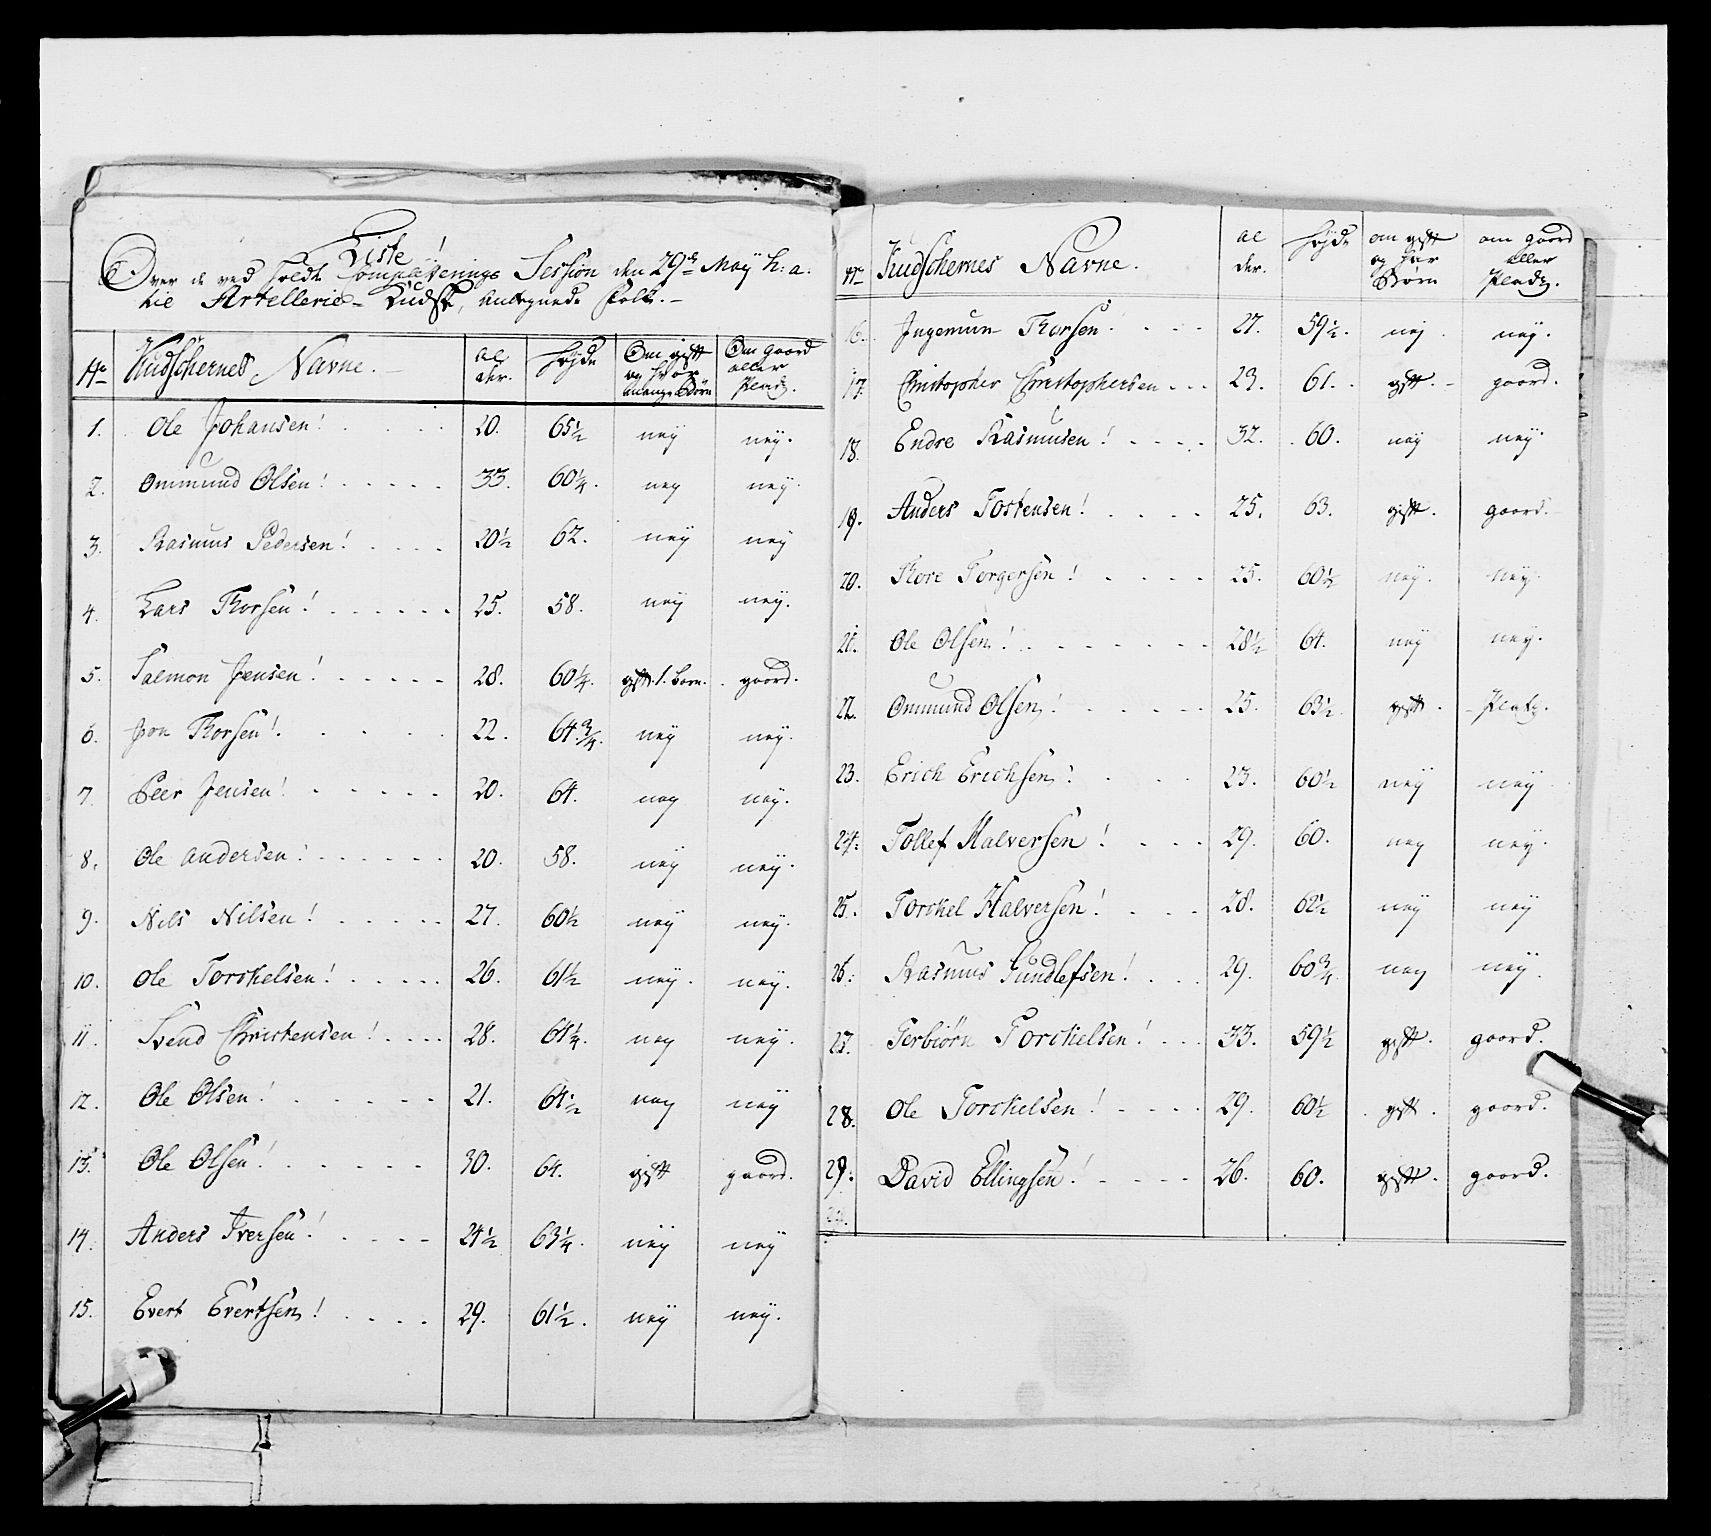 Liste!
Over de ved holdte Completerings Session den 29de Maÿ h: a.
til Artellerie- Kudsk, antegnede Folk.-
No Kudschernes Navne. Al der. Høÿde Om gift og hvor mange Børn Om gaord eller Plads.
1. Ole Johansen! 20. 65½ neÿ neÿ.
2. Ommund Olsen! 33. 60¼. neÿ neÿ.
3. Rasmus Pedersen! 20½ 62. neÿ neÿ
4. Lars Thorsen! 25. 58. neÿ neÿ.
5. Salmon Jensen! 28. 60¼. gift. 1. Barn. gaord.
6. Jon Thorsen! 22. 64¾. neÿ neÿ.
7. Peer Jensen! 20. 64. neÿ neÿ.
8. Ole Andersen! 20. 58. neÿ neÿ.
9. Nils Nilsen! 27. 60½ neÿ neÿ.
10. Ole Torckelsen! 26. 61½ neÿ. neÿ.
11. Svend Christensen! 28. 61¼. neÿ neÿ.
12. Ole Olsen! 21. 61½ neÿ neÿ
13. Ole Olsen! 30. 64. gift gaord.
14. Anders Iversen! 24½ 63¼. neÿ neÿ
15. Evert Evertsen! 29. 61½. neÿ neÿ.
No Kudschernes Navne. Al der. Høÿde om gift og har Børn om gaord eller Plads.
16. Ingemun Thorsen! 27. 59½. neÿ. neÿ.
17. Christopher Christophersen 23. 61. gift. gaord.
18. Endre Rasmusen! 32. 60. neÿ neÿ.
19. Anders Tostensen! 25. 63. gift. gaord.
20. Thore Torgersen! 25. 60½ neÿ. neÿ.
21. Ole Olsen! 28½ 64. neÿ neÿ.
22. Ommund Olsen! 25. 63½ gift. Plads.
23. Erich Erichsen! 23. 60½ neÿ neÿ
24. Tollef Halversen! 29. 60. neÿ neÿ.
25. Torckel Halversen! 28. 62½ neÿ neÿ
26. Rasmus Gundlefsen! 29. 60¾. neÿ neÿ.
27. Terbiörn Torckelsen! 33. 59½ gift. gaord.
28. Ole Torckelsen! 29. 60½ gift. gaord.
29. David Ellingsen! 26. 60. gift. gaord.